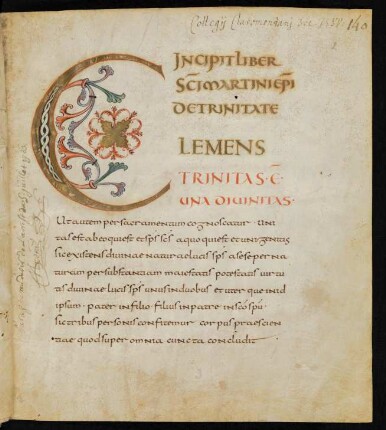 Collegij Claromontani
140
INCIPIT LIBER
SCI MARTINI EPI
DE TRINITATE
CLEMENS
TRINITAS · Ē
UNA DIUINITAS ·
Ut autem per sacramentum cognoscatur · Uni
tas est ab eo qui est et sps scs a quo qui est et unigenitus
sic existens diuinae naturae lucis sps a se se per na
turam per substantiam maiestatis potestatis uirtu
tis diuinae lucis sps unus in duobus et uterque in id
ipsum · pater in filio filius in patre in sco spu ·
sic tribus personis confitemur corpus praescien
tiae quod super omnia cuncta concludit